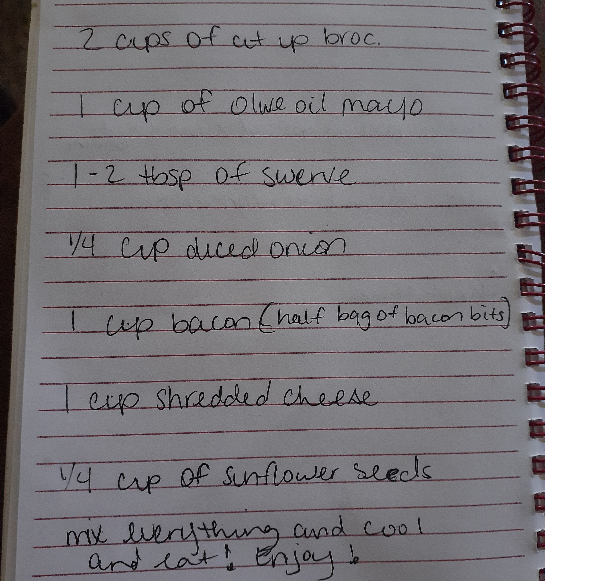 2 cups of cut up broc.
1 cup of olive oil mayo
1-2 tbsp of swerve
1/4 cup diced onion
1 cup bacon (half bag of bacon bits)
1 cup shredded cheese
1/4 cup of sunflower seeds
mix everything and cool
and eat! Enjoy!